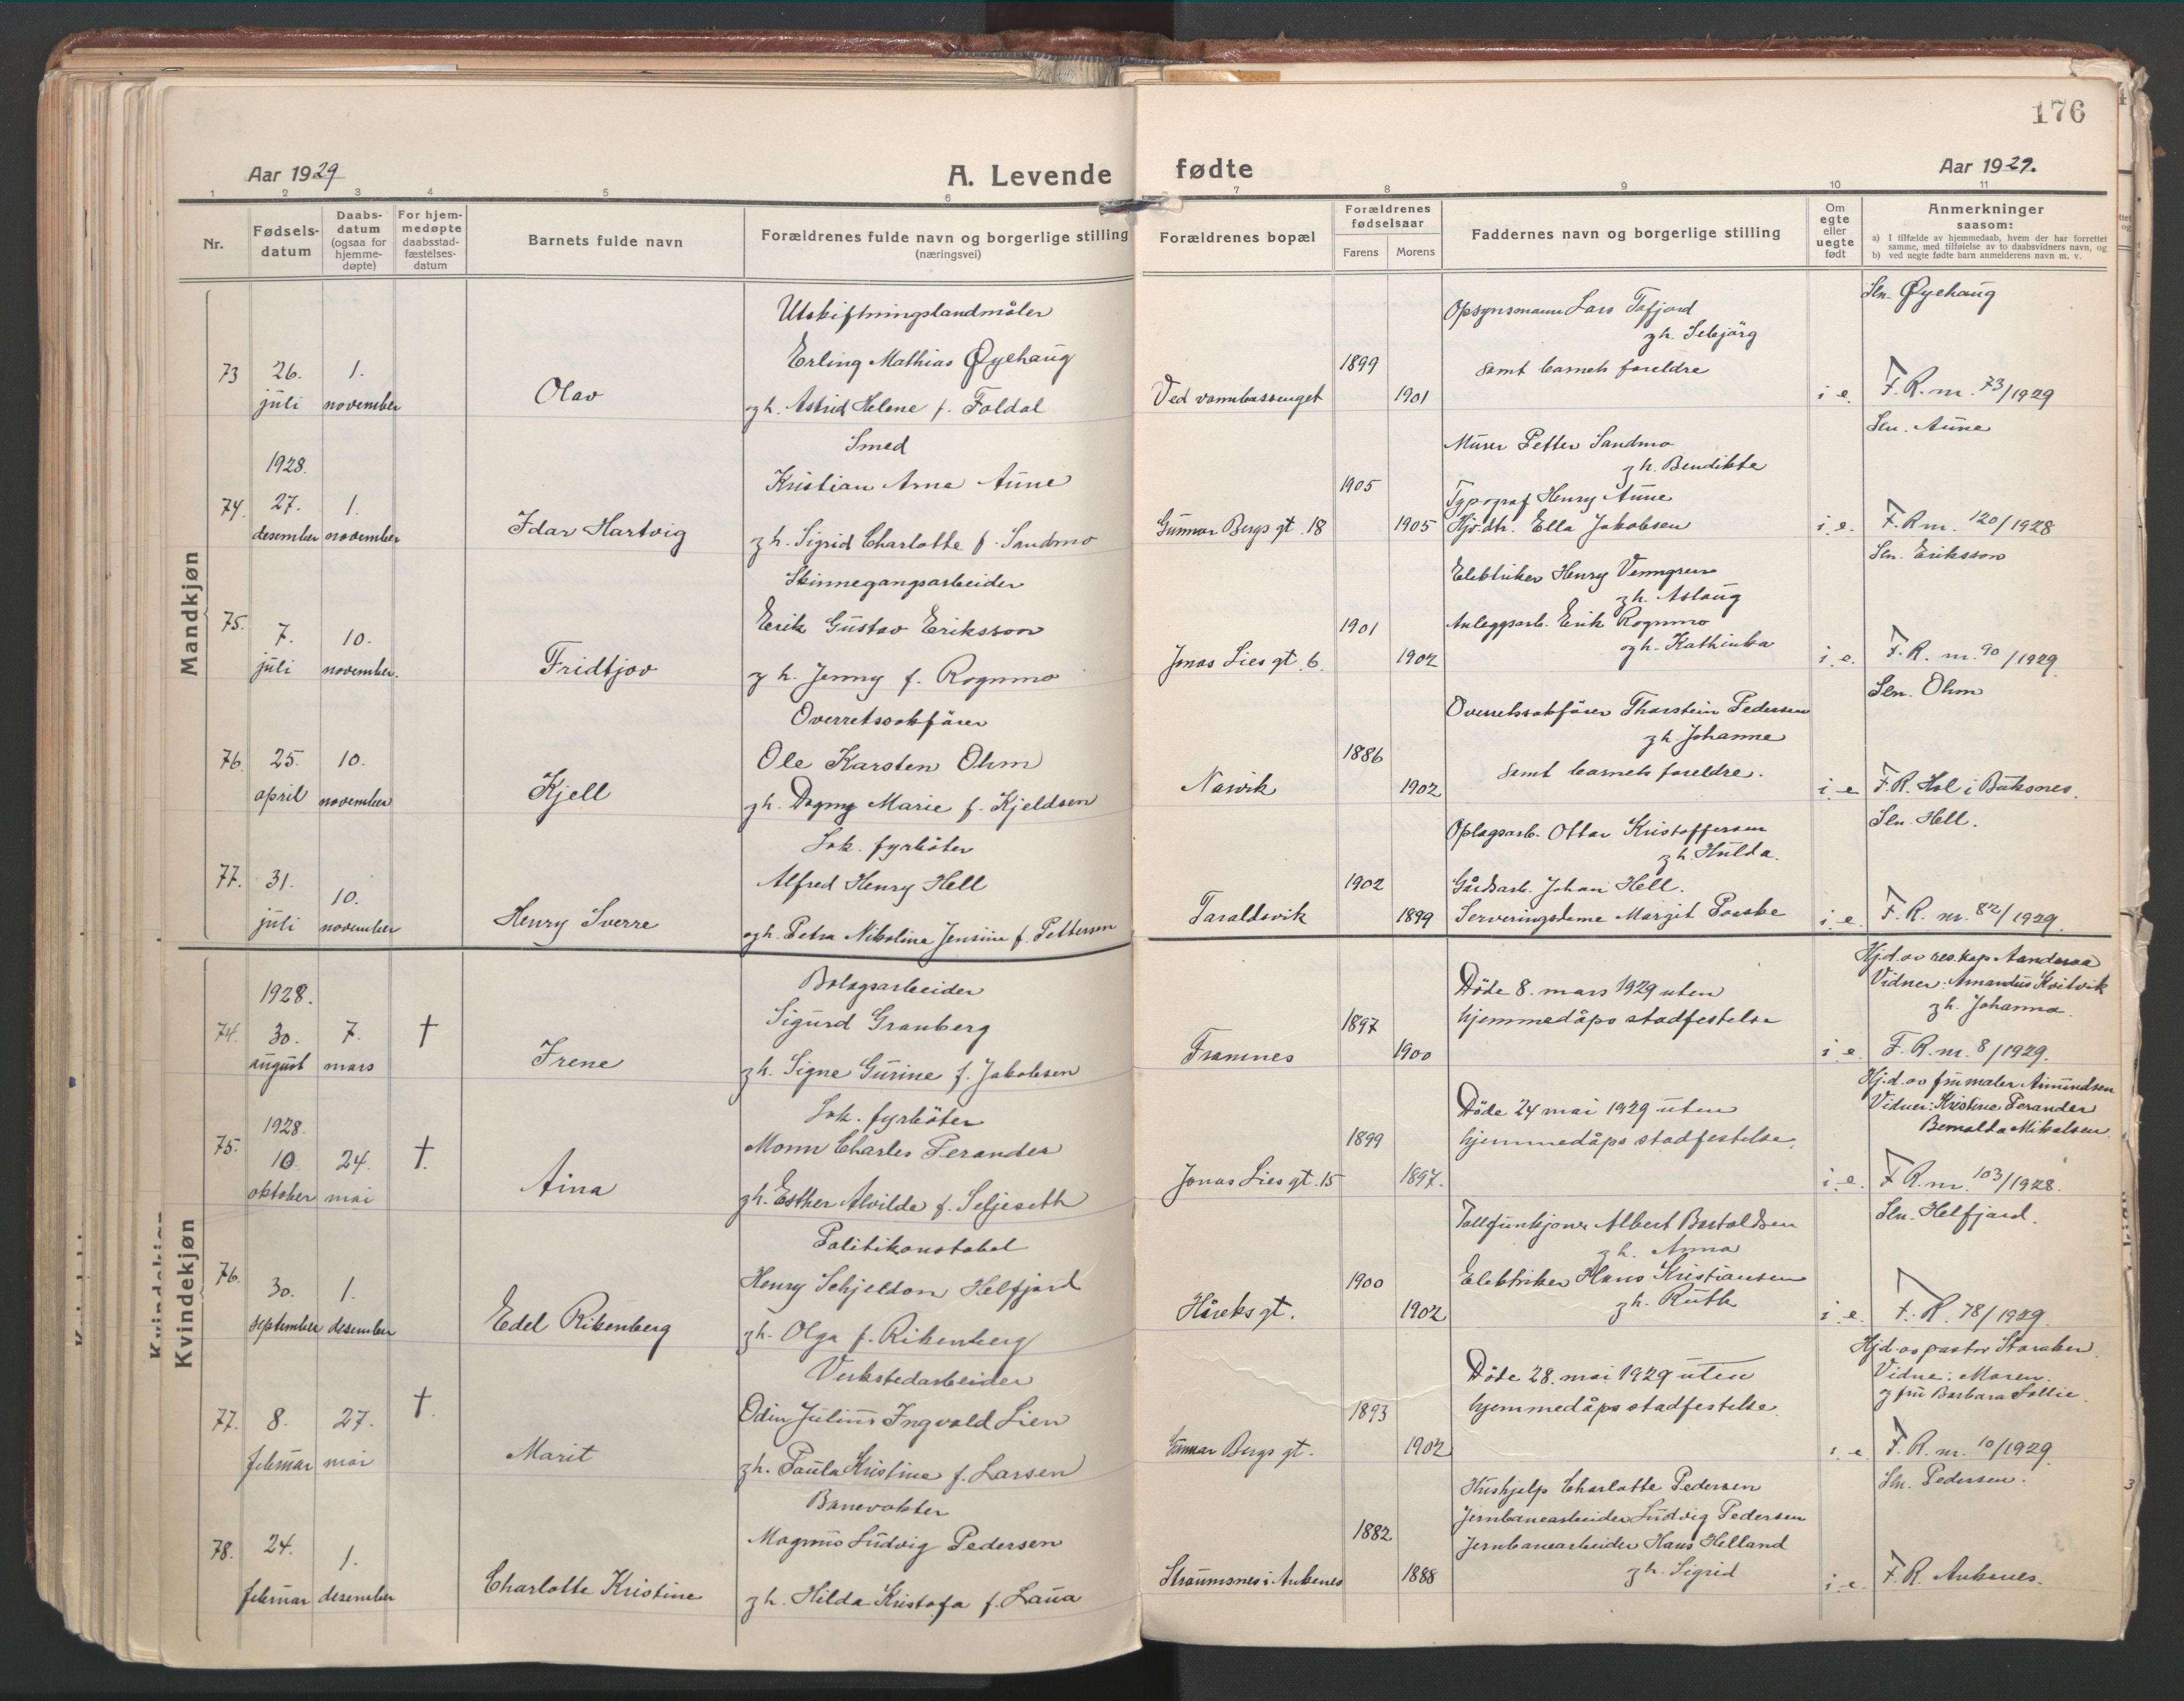 176
Aar 1929
A. Levende fødte
Aar 1929.
1 2 3 4 5 6 7 8 9 10 11
Nr.
Fødsels-
datum
Daabs-
datum
(ogsaa for
hjemme-
døpte)
For hjem-
medøpte
daabsstad-
fæstelses-
datum
Barnets fulde navn
Forældrenes fulde navn og borgerlige stilling
(næringsvei)
Forældrenes bopæl
Forældrenes
fødselsaar
Farens
Morens
Faddernes navn og borgerlige stilling
Om
egte
eller
uegte
født
Anmerkninger
saasom:
a) I tilfælde av hjemmedaab, hvem der har forrettet
samme, med tilføielse av to daabsvidners navn, og
b) ved uegte fødte barn anmelderens navn m. v.
Mandkjøn
73
26.
juli
1.
november
Olav
Utskiftningslandmåler
Erling Mathias Øyehaug
og h. Astrid Helene f. Foldal
Ved vannbassenget
1899
1901
Opsynsmann Lars Tafjord
og h. Sebjörg
samt barnets foreldre
i. e.
Sln. Øyehaug
F. R. nr. 73/1929
74.
1928.
27.
desember
1.
november
Idar Hartvig
Smed
Kristian Arne Aune
og h. Sigrid Charlotte f. Sandmo
Gunnar Bergs gt. 18
1905
1905
Murer Petter Sandmo
og h. Bendikte
Typograf Henry Aune
Hjv.dtr. Ella Jakobsen
i. e.
Sln. Aune
F. R. nr. 120/1928
75.
7.
juli
10.
november.
Fridtjov
Skinnegangsarbeider
Erik Gustav Eriksson
og h. Jenny f. Rognmo
Jonas Lies gt. 6.
1901
1902
Elektriker Henry Venngren
og h. Aslaug
Anleggsarb. Erik Rognmo
og h. Kathinka
i. e.
Sln. Eriksson
F. R. nr. 90/1929
76.
25.
april
10.
november
Kjell
Overretssakfører
Ole Karsten Ohm
og h. Dagny Marie f. Kjeldsen
Narvik
1886
1902
Overretssakfører Thorstein Pedersen
og h. Johanne
samt barnets foreldre.
i. e
Sln. Ohm
F. R. Hol i Buksnes.
77.
31.
juli
10.
november
Henry Sverre
Lok. fyrbøter
Alfred Henry Hell
og h. Petra Nikoline Jensine f. Pettersen
Taraldsvik
1902
1899
Oplagsarb. Ottar Kristoffersen
og h. Hulda.
Gårdsarb. Johan Hell.
Serveringsdame Margit
i. e.
Sln. Hell.
F. R. nr. 82/1929.
Kvindekjøn
74.
1928.
30.
august
7.
mars
†
Irene
Bolagsarbeider
Sigurd Granberg
og h. Signe Gurine f. Jakobsen
Framnes
1897
1900
Døde 8. mars 1929 uten
hjemmedåps stadfestelse
i e.
Hj.d. av res. kap. Aanderaa
Vidner: Amandus Kvitvik
og h. Johanna.
F. R. nr. 8/1929.
75.
1928.
10.
oktober
24.
mai
†.
Aina
Lok. fyrbøter
Monn Charles Perander
og h. Esther Alvilde f. Seljeseth
Jonas Lies gt. 15
1899
1897.
Døde 24 mai 1929 uten
hjemmedåps stadfestelse.
i. e.
Hj.d. av fru maler Amundsen
Vidner: Kristine Perander
Mikalsen.
F. R. nr. 103/1928.
76.
30.
september
1.
desember
Edel Rikenberg
Politikonstabel
Henry Schjeldon Helfjord
og h. Olga f. Rikenberg
Håreks gt.
1900
1902
Tollfunksjonær Albert Bartoldsen
og h. Anna
Elektriker Hans Kristiansen
og h. Ruth
i. e.
Sln. Helfjord.
F. R. 78/1929.
77.
8.
februar
27.
mai
†.
Marit
Verkstedarbeider
Odin Julius Ingvald Lien
og h. Paula Kristine f. Larsen
Gunnar Bergs gt.
1893
1902
Døde 28. mai 1929 uten
hjemmedåps stadfestelse.
i. e
Hj.d. av pastor Storaker.
Vidne: Moren.
og fru Barbara Sollie.
F. R. nr. 10/1929.
78.
24.
februar
1.
desember
Charlotte Kristine
Banevokter
Magnus Ludvig Pedersen
og h. Hilda Kristofa f. Laua
Straumsnes i Ankenes
1882
1888
Hushjelp Charlotte Pedersen
Jernbanearbeider Ludvig Pedersen
Jernbanearbeider Hans Helland
og h. Sigrid
i. e.
Sln. Pedersen.
F. R. Ankenes.